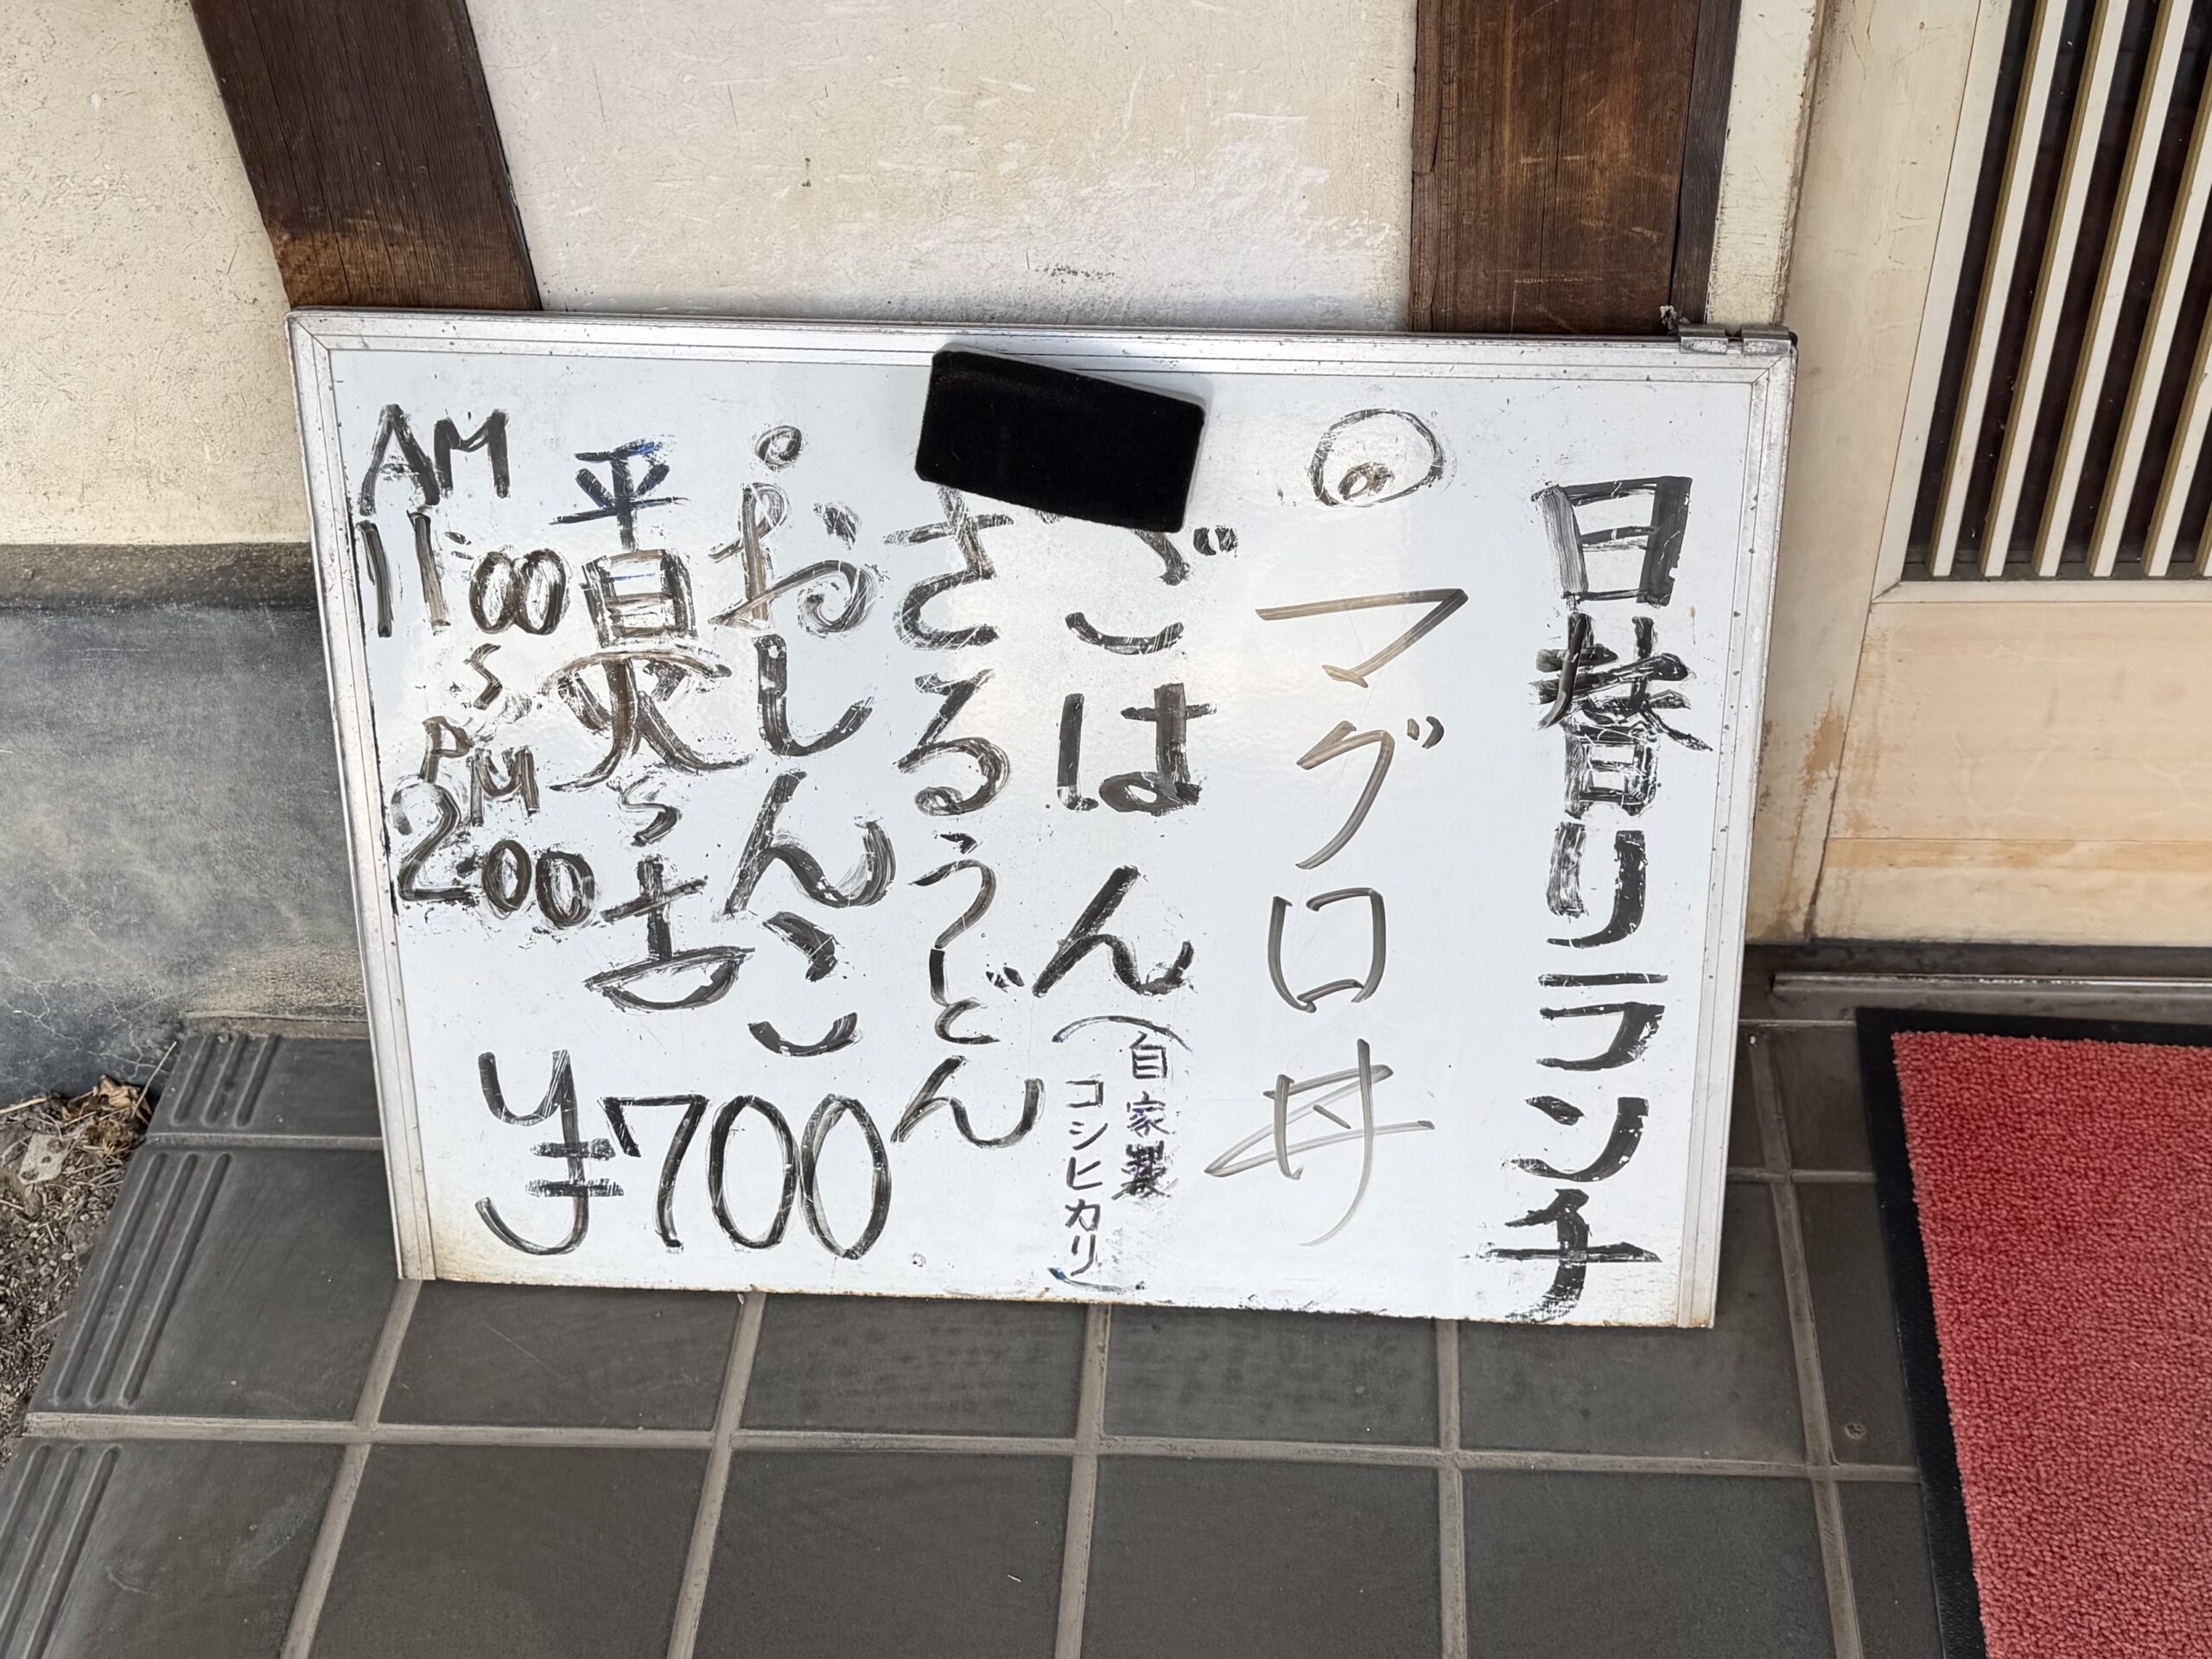 日替りランチ
◎マグロ丼
ごはん(自家製
コシヒカリ)
ざるうどん
おしんこ
平日火〜
AM
11:00
〜
PM
2:00
¥700